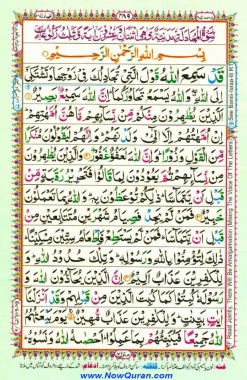 بِسْمِ اللّٰهِ الرَّحْمٰنِ الرَّحِيْمِ
قَدْ سَمِعَ اللّٰهُ قَوْلَ الَّتِيْ تُجَادِلُكَ فِيْ زَوْجِهَا وَتَشْتَكِيْٓ
اِلَى اللّٰهِ وَاللّٰهُ يَسْمَعُ تَحَاوُرَكُمَا اِنَّ اللّٰهَ سَمِيْعٌۢ بَصِيْرٌ
اَلَّذِيْنَ يُظٰهِرُوْنَ مِنْكُمْ مِّنْ نِّسَآئِهِمْ مَّا هُنَّ اُمَّهٰتِهِمْ
اِنْ اُمَّهٰتُهُمْ اِلَّا الّٰٓئِيْ وَلَدْنَهُمْ وَاِنَّهُمْ لَيَقُوْلُوْنَ مُنْكَرًا
مِّنَ الْقَوْلِ وَزُوْرًا وَاِنَّ اللّٰهَ لَعَفُوٌّ غَفُوْرٌ وَالَّذِيْنَ يُظٰهِرُوْنَ
مِنْ نِّسَآئِهِمْ ثُمَّ يَعُوْدُوْنَ لِمَا قَالُوْا فَتَحْرِيْرُ رَقَبَةٍ مِّنْ
قَبْلِ اَنْ يَّتَمَآسَّا ذٰلِكُمْ تُوْعَظُوْنَ بِهٖ وَاللّٰهُ بِمَا تَعْمَلُوْنَ
خَبِيْرٌ فَمَنْ لَّمْ يَجِدْ فَصِيَامُ شَهْرَيْنِ مُتَتَابِعَيْنِ مِنْ
قَبْلِ اَنْ يَّتَمَآسَّا فَمَنْ لَّمْ يَسْتَطِعْ فَاِطْعَامُ سِتِّيْنَ مِسْكِيْنًا
ذٰلِكَ لِتُؤْمِنُوْا بِاللّٰهِ وَرَسُوْلِهٖ وَتِلْكَ حُدُوْدُ اللّٰهِ وَ
لِلْكٰفِرِيْنَ عَذَابٌ اَلِيْمٌ اِنَّ الَّذِيْنَ يُحَآدُّوْنَ اللّٰهَ وَ
رَسُوْلَهٗ كُبِتُوْا كَمَا كُبِتَ الَّذِيْنَ مِنْ قَبْلِهِمْ وَقَدْ اَنْزَلْنَآ
اٰيٰتٍۭ بَيِّنٰتٍ وَلِلْكٰفِرِيْنَ عَذَابٌ مُّهِيْنٌ يَوْمَ يَبْعَثُهُمُ
اللّٰهُ جَمِيْعًا فَيُنَبِّئُهُمْ بِمَا عَمِلُوْا اَحْصٰىهُ اللّٰهُ وَنَسُوْهُ
www.NowQuran.com